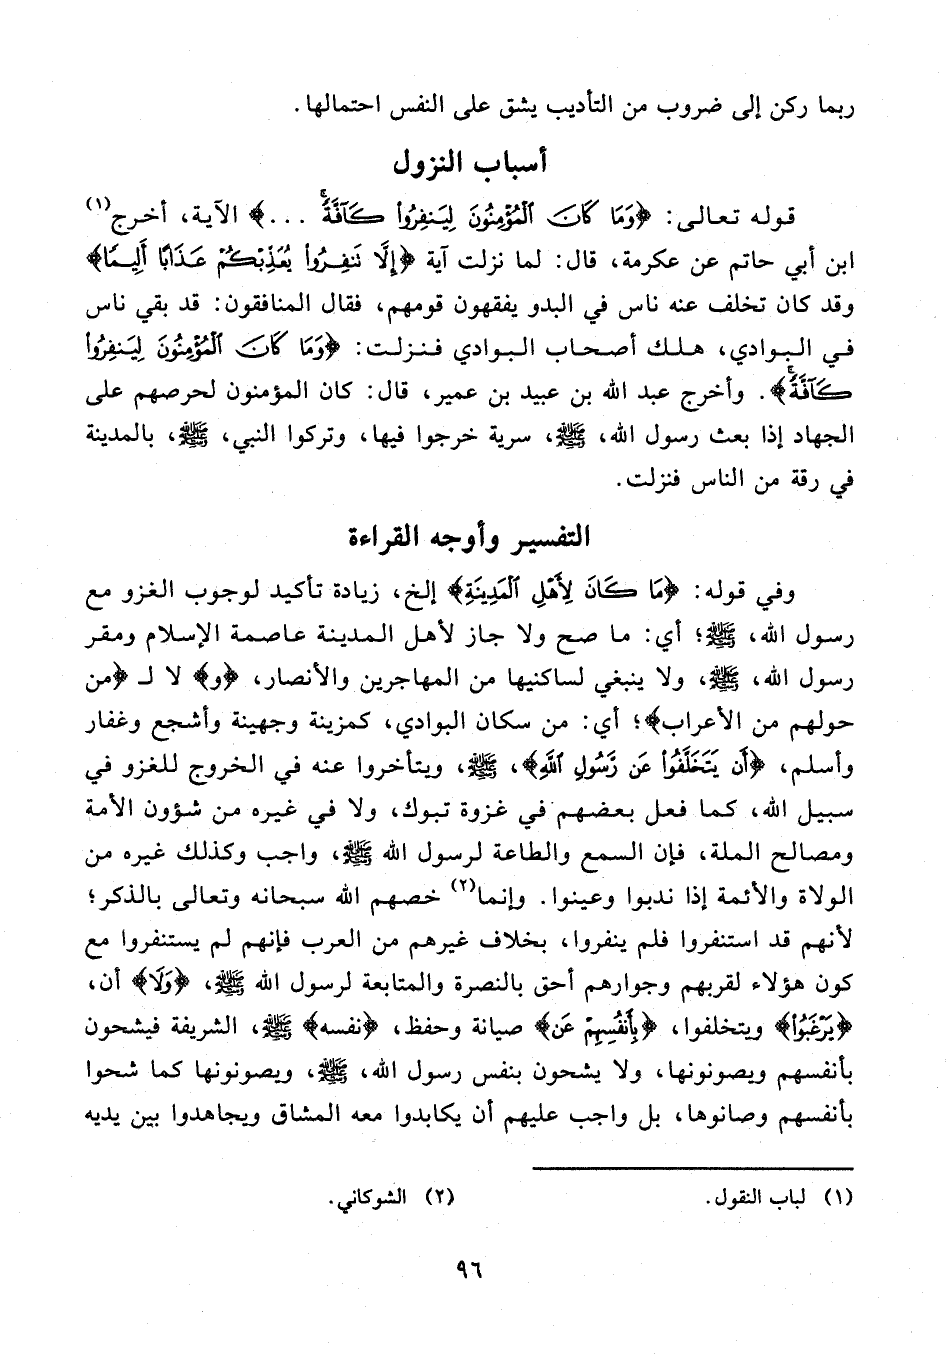 ربما ركن إلى ضروب من التأديب يشق على النفس احتمالها.
أسباب النزول
قوله تعالى: ﴿وَمَا كَانَ ٱلْمُؤْمِنُونَ لِيَنفِرُوا۟ كَآفَّةًۚ ...﴾ الآية، أخرج(١)
ابن أبي حاتم عن عكرمة، قال: لما نزلت آية ﴿إِلَّا تَنفِرُوا۟ يُعَذِّبْكُمْ عَذَابًا أَلِيمًا﴾
وقد كان تخلف عنه ناس في البدو يفقهون قومهم، فقال المنافقون: قد بقي ناس
في البوادي، هلك أصحاب البوادي فنزلت: ﴿وَمَا كَانَ ٱلْمُؤْمِنُونَ لِيَنفِرُوا۟
كَآفَّةًۚ﴾. وأخرج عبد الله بن عبيد بن عمير، قال: كان المؤمنون لحرصهم على
الجهاد إذا بعث رسول الله، ﷺ، سرية خرجوا فيها، وتركوا النبي، ﷺ، بالمدينة
في رقة من الناس فنزلت.
التفسير وأوجه القراءة
وفي قوله: ﴿مَا كَانَ لِأَهْلِ ٱلْمَدِينَةِ﴾ إلخ، زيادة تأكيد لوجوب الغزو مع
رسول الله، ﷺ؛ أي: ما صح ولا جاز لأهل المدينة عاصمة الإسلام ومقر
رسول الله، ﷺ، ولا ينبغي لساكنيها من المهاجرين والأنصار، ﴿و﴾ لا لـ ﴿من
حولهم من الأعراب﴾؛ أي: من سكان البوادي، كمزينة وجهينة وأشجع وغفار
وأسلم، ﴿أَن يَتَخَلَّفُوا۟ عَن رَّسُولِ ٱللَّهِ﴾، ﷺ، ويتأخروا عنه في الخروج للغزو في
سبيل الله، كما فعل بعضهم في غزوة تبوك، ولا في غيره من شؤون الأمة
ومصالح الملة، فإن السمع والطاعة لرسول الله ﷺ، واجب وكذلك غيره من
الولاة والأئمة إذا ندبوا وعينوا. وإنما(٢) خصهم الله سبحانه وتعالى بالذكر؛
لأنهم قد استنفروا فلم ينفروا، بخلاف غيرهم من العرب فإنهم لم يستنفروا مع
كون هؤلاء لقربهم وجوارهم أحق بالنصرة والمتابعة لرسول الله ﷺ، ﴿وَلَا﴾ أن،
﴿يَرْغَبُوا۟﴾ ويتخلفوا، ﴿بِأَنفُسِهِمْ عَن﴾ صيانة وحفظ، ﴿نفسه﴾ ﷺ، الشريفة فيشحون
بأنفسهم ويصونونها، ولا يشحون بنفس رسول الله، ﷺ، ويصونونها كما شحوا
بأنفسهم وصانوها، بل واجب عليهم أن يكابدوا معه المشاق ويجاهدوا بين يديه
(١) لباب النقول. (٢) الشوكاني.
٩٦